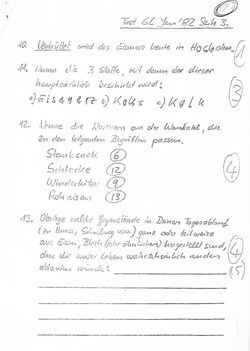 Test GL Jan '82 Seite 3.
10. Verhüttet wird das Eisenerz heute in Hochofen. 1
11. Nenne die 3 Stoffe, mit denen der dieser
hauptsächlich beschickt wird:
a) Eisenerz b) Koks c) Kalk 3
12. Nenne die Nummern an der Wandtafel, die
zu den folgenden Begriffen passen.
Staubsack 6
Schlacke 12
Winderhitzer 9
Roheisen 13
4
13. Überlege welche Gegenstände in Deinem Tagesablauf
(zu Hause, Schulweg usw.) ganz oder teilweise
aus Eisen, Blech (oder ähnlichem) hergestellt sind,
ohne die unser Leben wahrscheinlich anders
ablaufen würde:
4
(5)